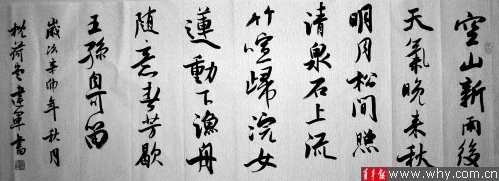 空山新雨後
天氣晚来秋
明月松间照
清泉石上流
竹喧歸浣女
蓮動下渔舟
随意春芳歇
王孫自可留
歲次辛卯年秋月
建軍書
青年报 www.why.com.cn